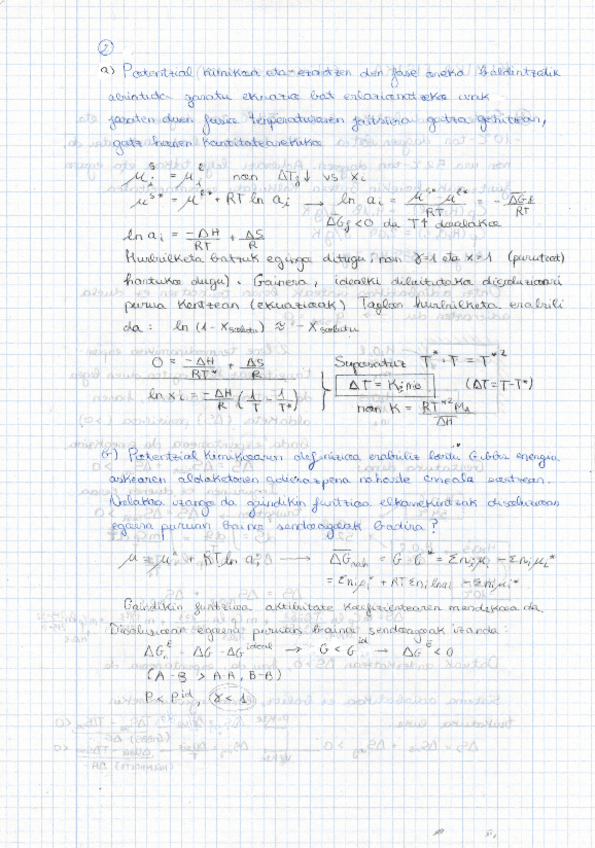 2
a) Potentzial kimikoa eta ezartzen den fase oreka baldintzatik
abiatuta garatu ekuazio bat erlazionatzeko urak
jasaten duen fusio tenperaturaren jaitsiera gatza gehitzean,
gatz honen kantitatearekiko
μᵢˢ = μᵢˡ non ΔT_f ↓ vs xᵢ
μˢ* = μˡ* + RT ln aᵢ → ln aᵢ = (μˢ* - μˡ*)/RT = - ΔG_f/RT
ΔG_f < 0 da T↑ doalako
ln aᵢ = -ΔH/RT + ΔS/R
Hurbilketa batzuk egingo ditugu, non γ=1 eta x=1 (purutzat)
hartuko dugu). Gainera, idealki diluitutako disoluzioari
purua kentzean (ekuazioak) Taylor hurbilketa erabili
da: ln (1 - x_solutu) ≈ - x_solutu
0 = -ΔH/RT* + ΔS/R
Suposatuz T* · T = T*²
ln xᵢ = -ΔH/R (1/T - 1/T*)
ΔT = Kf m (ΔT = T - T*)
non K = RT*² M₁/ΔH
b) Potentzial kimikoaren definizioa erabiliz lortu Gibbs energia
askearen aldaketaren adierazpena nahaste erreala sortzean.
Nolakoa izango da gaindikin funtzioa elkarrekintzak disoluzioan
egoera puruan baino sendoagoak badira?
μᵢ = μᵢ* + RT ln aᵢ → ΔG_nah = G - G* = Σnᵢμᵢ - Σnᵢμᵢ*
= Σnᵢμᵢ* + RT Σnᵢ ln aᵢ - Σnᵢμᵢ*
Gaindikin funtzioa aktibitate koefizientearen menpekoa da.
Disoluzioan egoera puruan baino sendoagoak izanda:
ΔGᴱ = ΔG - ΔG ideal → G < Gⁱᵈ → ΔGᴱ < 0
(A-B > A-A, B-B)
P < Pⁱᵈ, γ < 1